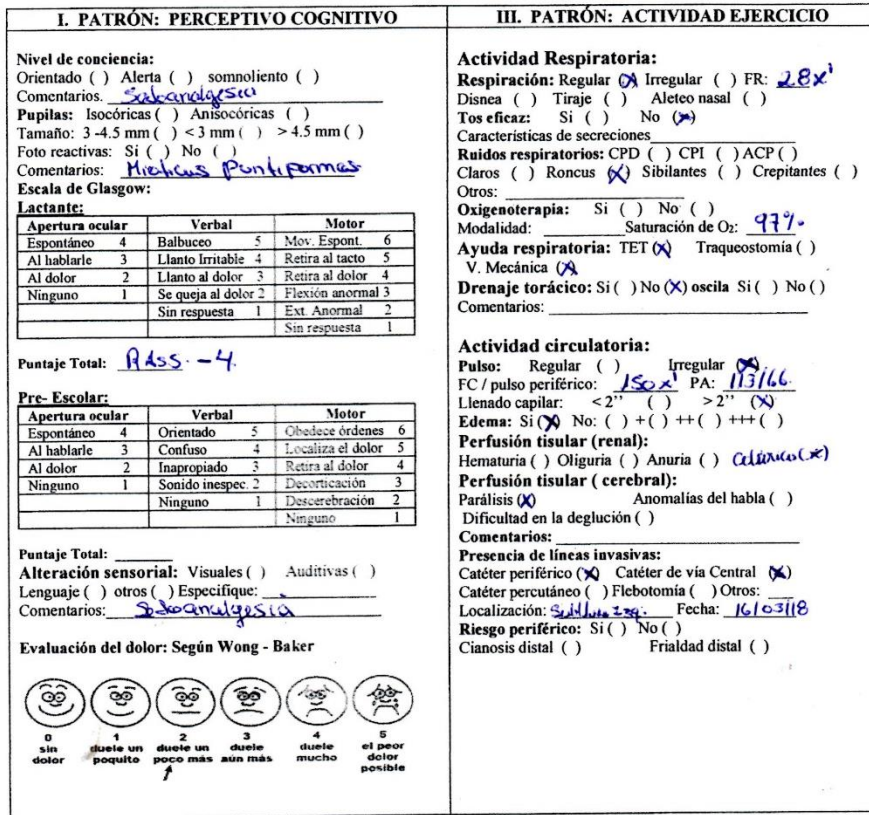 I. PATRÓN: PERCEPTIVO COGNITIVO
Nivel de conciencia:
Orientado ( ) Alerta ( ) somnoliento ( )
Comentarios. Sedoanalgesia
Pupilas: Isocóricas ( ) Anisocóricas ( )
Tamaño: 3 -4.5 mm ( ) < 3 mm ( ) > 4.5 mm ( )
Foto reactivas: Si ( ) No ( )
Comentarios: Mioticas Puntiformes
Escala de Glasgow:
Lactante:
Apertura ocular Verbal Motor
Espontáneo 4 Balbuceo 5 Mov. Espont. 6
Al hablarle 3 Llanto Irritable 4 Retira al tacto 5
Al dolor 2 Llanto al dolor 3 Retira al dolor 4
Ninguno 1 Se queja al dolor 2 Flexión anormal 3
Sin respuesta 1 Ext. Anormal 2
Sin respuesta 1
Puntaje Total: -4.
Pre- Escolar:
Apertura ocular Verbal Motor
Espontáneo 4 Orientado 5 Obedece órdenes 6
Al hablarle 3 Confuso 4 Localiza el dolor 5
Al dolor 2 Inapropiado 3 Retira al dolor 4
Ninguno 1 Sonido inespec. 2 Decorticación 3
Ninguno 1 Descerebración 2
Ninguno 1
Puntaje Total:
Alteración sensorial: Visuales ( ) Auditivas ( )
Lenguaje ( ) otros ( ) Especifique:
Comentarios: Sedoanalgesia
Evaluación del dolor: Según Wong - Baker
0 1 2 3 4 5
sin dolor duele un poquito duele un poco más duele aún más duele mucho el peor dolor posible
III. PATRÓN: ACTIVIDAD EJERCICIO
Actividad Respiratoria:
Respiración: Regular (X) Irregular ( ) FR: 28x'
Disnea ( ) Tiraje ( ) Aleteo nasal ( )
Tos eficaz: Si ( ) No (X)
Características de secreciones
Ruidos respiratorios: CPD ( ) CPI ( ) ACP ( )
Claros ( ) Roncus (X) Sibilantes ( ) Crepitantes ( )
Otros:
Oxigenoterapia: Si ( ) No ( )
Modalidad: Saturación de O₂: 97%
Ayuda respiratoria: TET (X) Traqueostomía ( )
V. Mecánica (X)
Drenaje torácico: Si ( ) No (X) oscila Si ( ) No ( )
Comentarios:
Actividad circulatoria:
Pulso: Regular ( ) Irregular (X).
FC / pulso periférico: 150x' PA: 113/66.
Llenado capilar: < 2’’ ( ) > 2’’ (X)
Edema: Si (X) No: ( ) + ( ) ++ ( ) +++ ( )
Perfusión tisular (renal):
Hematuria ( ) Oliguria ( ) Anuria ( ) (X)
Perfusión tisular ( cerebral):
Parálisis (X) Anomalías del habla ( )
Dificultad en la deglución ( )
Comentarios:
Presencia de líneas invasivas:
Catéter periférico (X) Catéter de vía Central (X)
Catéter percutáneo ( ) Flebotomía ( ) Otros:
Localización: Izq. Fecha: 16/03/18
Riesgo periférico: Si ( ) No ( )
Cianosis distal ( ) Frialdad distal ( )